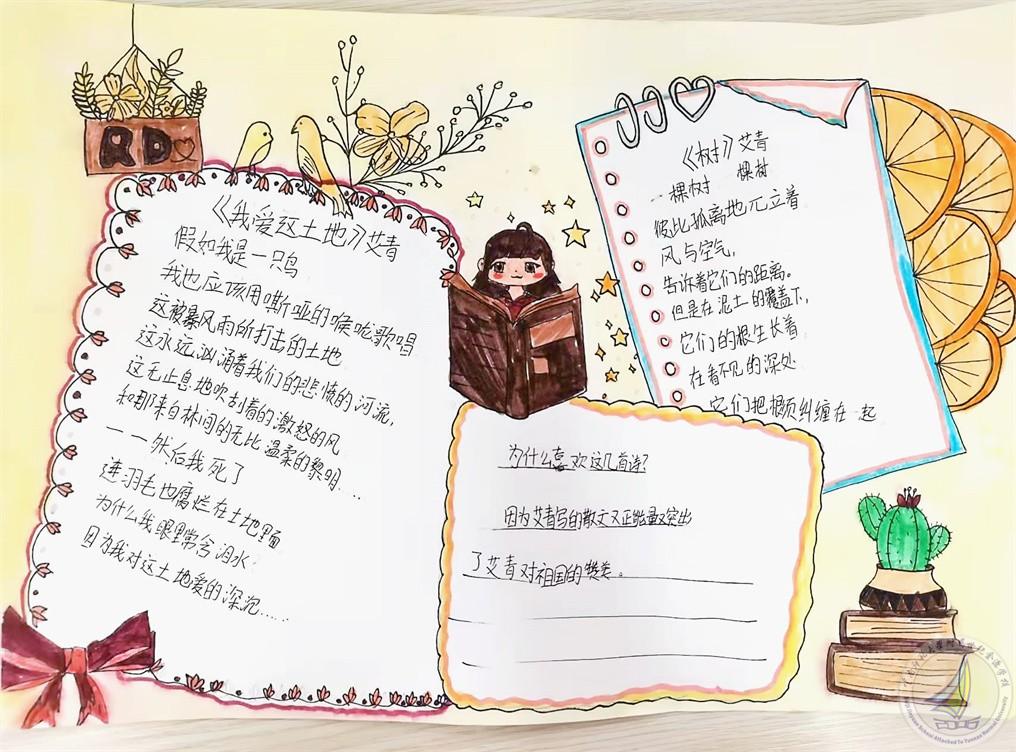 RD
《我爱这土地》艾青
假如我是一只鸟
我也应该用嘶哑的喉咙歌唱
这被暴风雨所打击的土地
这永远汹涌着我们的悲愤的河流,
这无止息地吹刮着的激怒的风
和那来自林间的无比温柔的黎明....
——然后我死了
连羽毛也腐烂在土地里面
为什么我眼里常含泪水?
因为我对这土地爱的深沉.....
《树》艾青
一棵树 棵树
彼此孤离地兀立着
风与空气,
告诉着它们的距离。
但是在泥土的覆盖下,
它们的根生长着
在看不见的深处
它们把根须纠缠在一起
为什么喜欢这几首诗?
因为艾青写的散文又正能量又突出
了艾青对祖国的赞美。